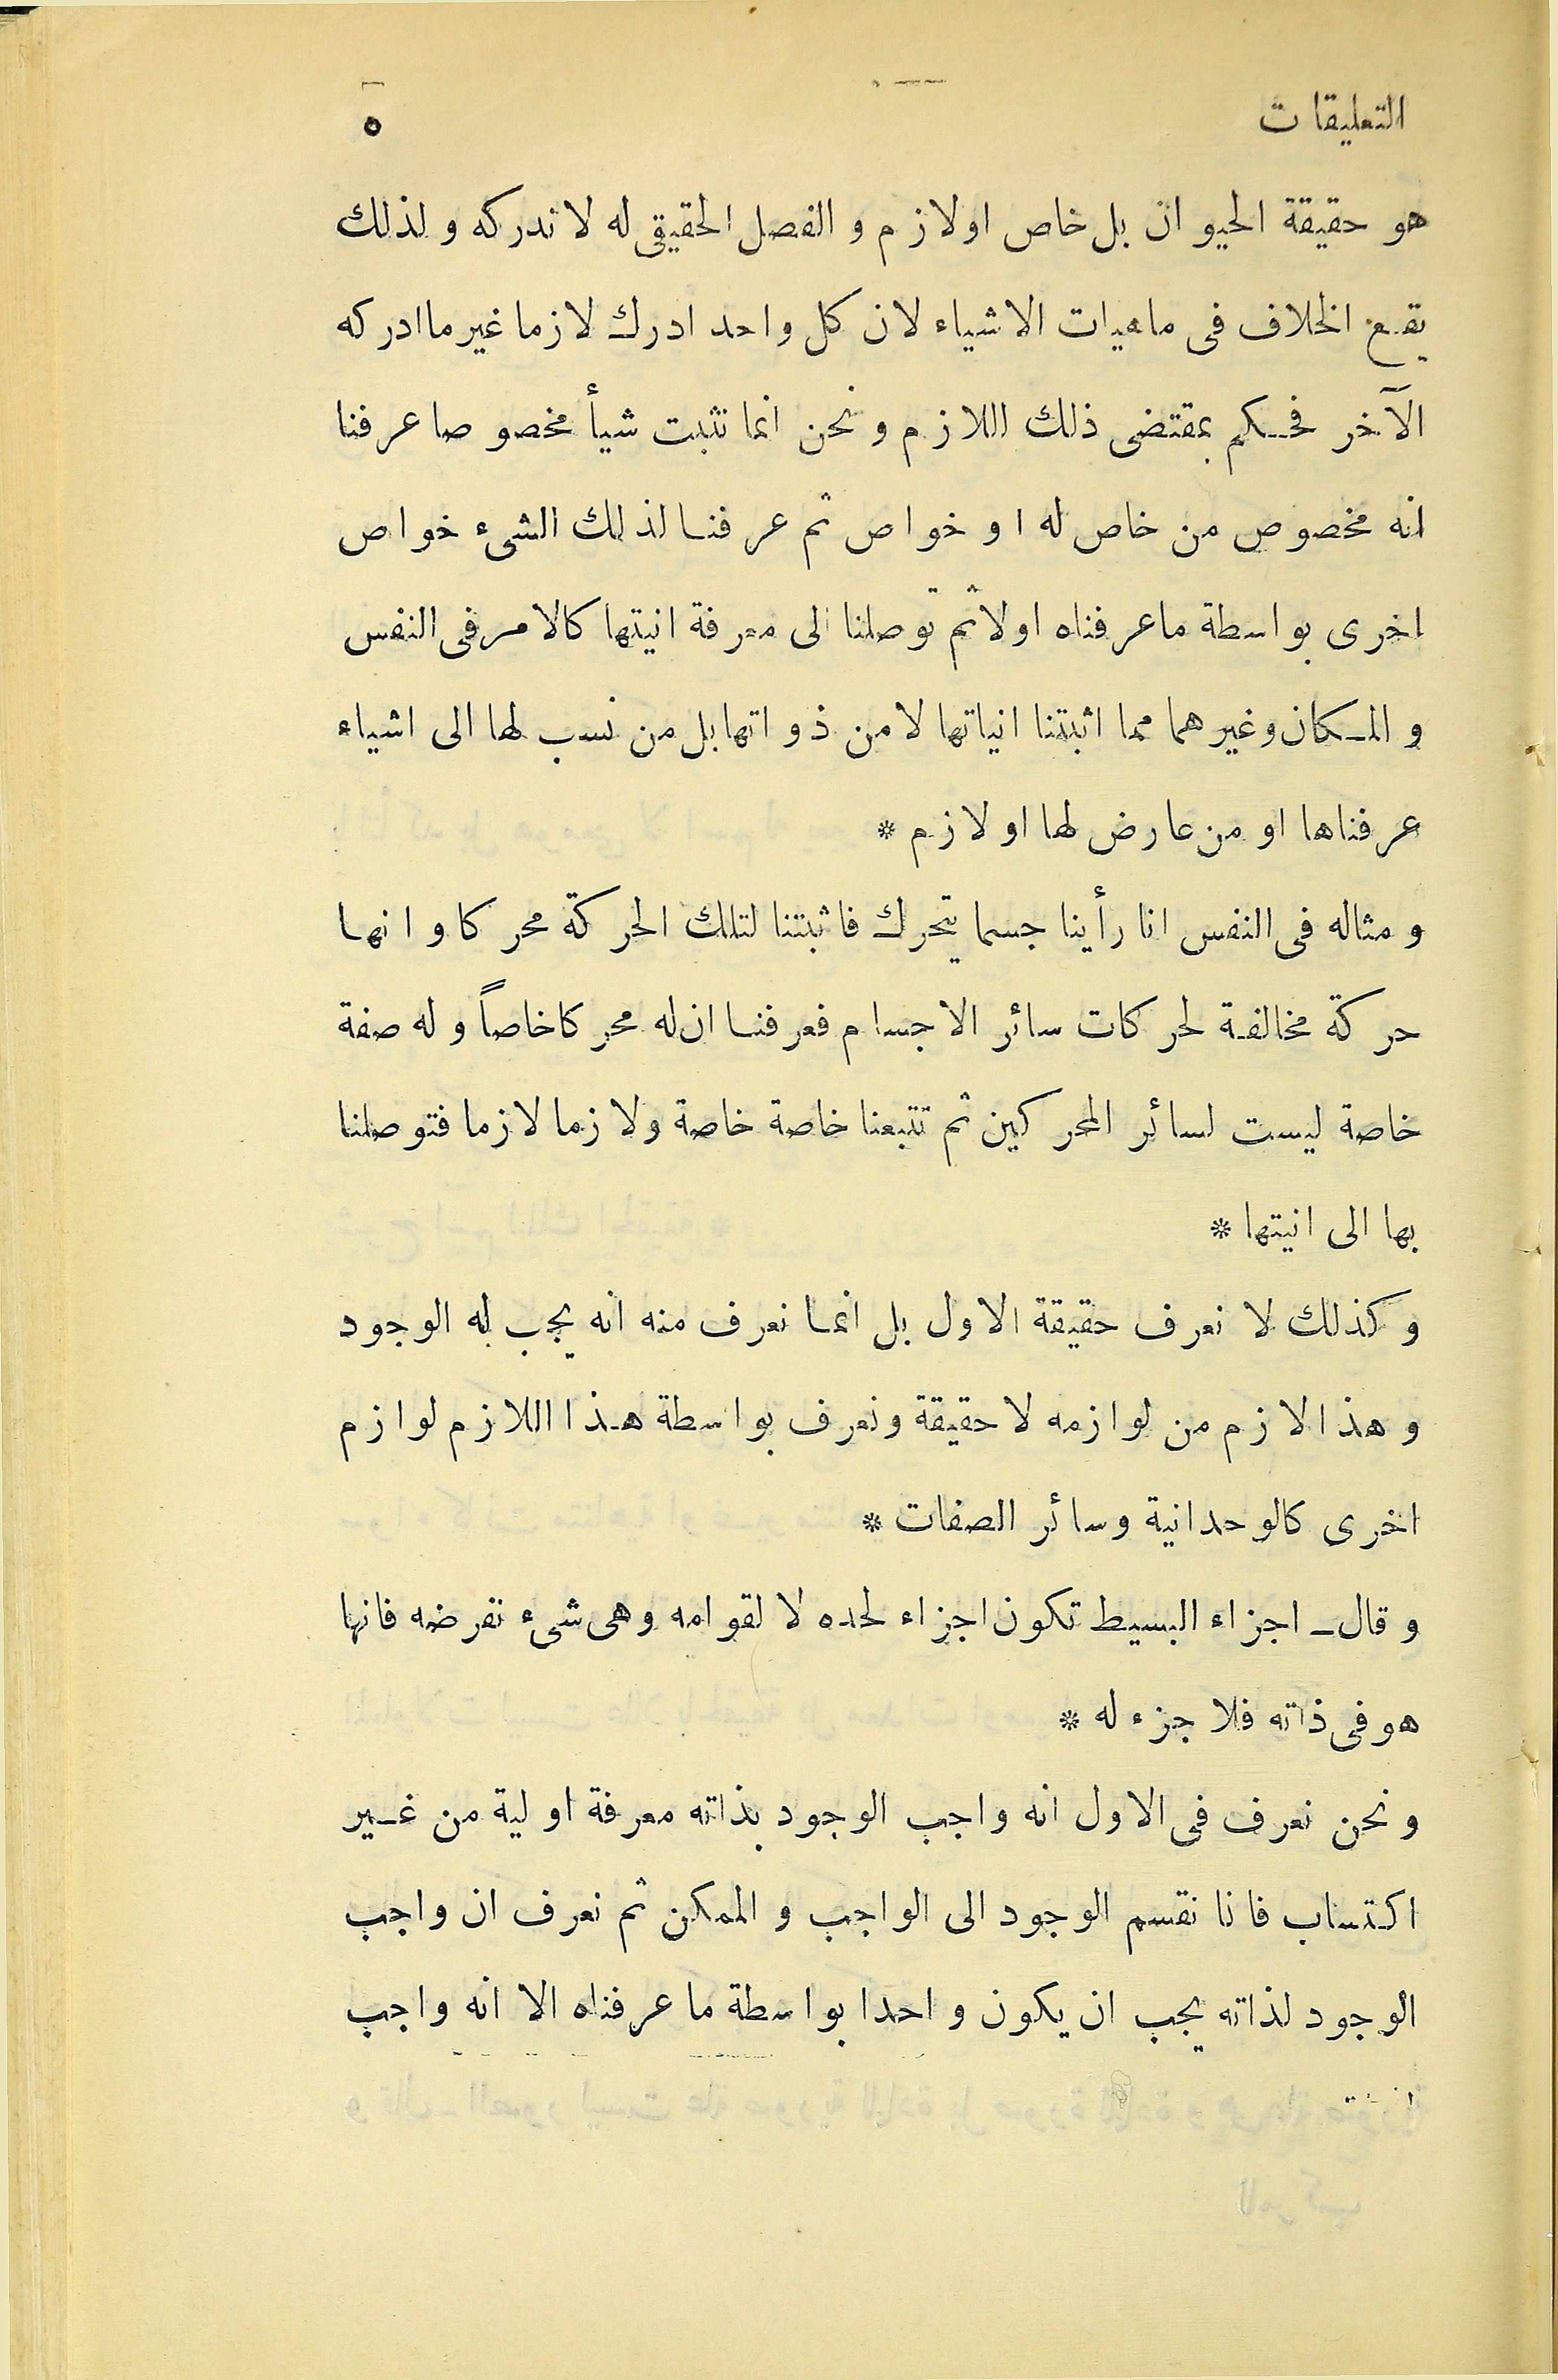 التعليقات ٥
هو حقيقة الحيوان بل خاص او لازم و الفصل الحقيقي له لا ندركه و لذلك
يقع الخلاف فى ماهيات الاشياء لان كل واحد ادرك لازما غير ما ادركه
الآخر فحكم بمقتضى ذلك اللازم و نحن انما نثبت شيأ مخصوصا عرفنا
انه مخصوص من خاص له او خواص ثم عرفنا لذلك الشىء خواص
اخرى بواسطة ما عرفناه اولا ثم توصلنا الى معرفة انيتها كالامر فى النفس
و المكان و غيرهما مما اثبتنا انياتها لا من ذواتها بل من نسب لها الى اشياء
عرفناها او من عارض لها او لازم *
و مثاله فى النفس انا رأينا جسما يتحرك فاثبتنا لتلك الحركة محركا و انها
حركة مخالفة لحركات سائر الاجسام فعرفنا ان له محركا خاصاً و له صفة
خاصة ليست لسائر المحركين ثم تتبعنا خاصة خاصة ولازما لازما فتوصلنا
بها الى انيتها *
و كذلك لا نعرف حقيقة الاول بل انما نعرف منه انه يجب له الوجود
و هذا لازم من لوازمه لا حقيقة و نعرف بواسطة هذا اللازم لوازم
اخرى كالوحدانية و سائر الصفات *
و قال ـ اجزاء البسيط تكون اجزاء لحده لا لقوامه و هى شىء نفرضه فانها
هو فى ذاته فلا جزء له *
و نحن نعرف فى الاول انه واجب الوجود بذاته معرفة اولية من غير
اكتساب فانا نقسم الوجود الى الواجب و الممكن ثم نعرف ان واجب
الوجود لذاته يجب ان يكون واحدا بواسطة ما عرفناه الا انه واجب